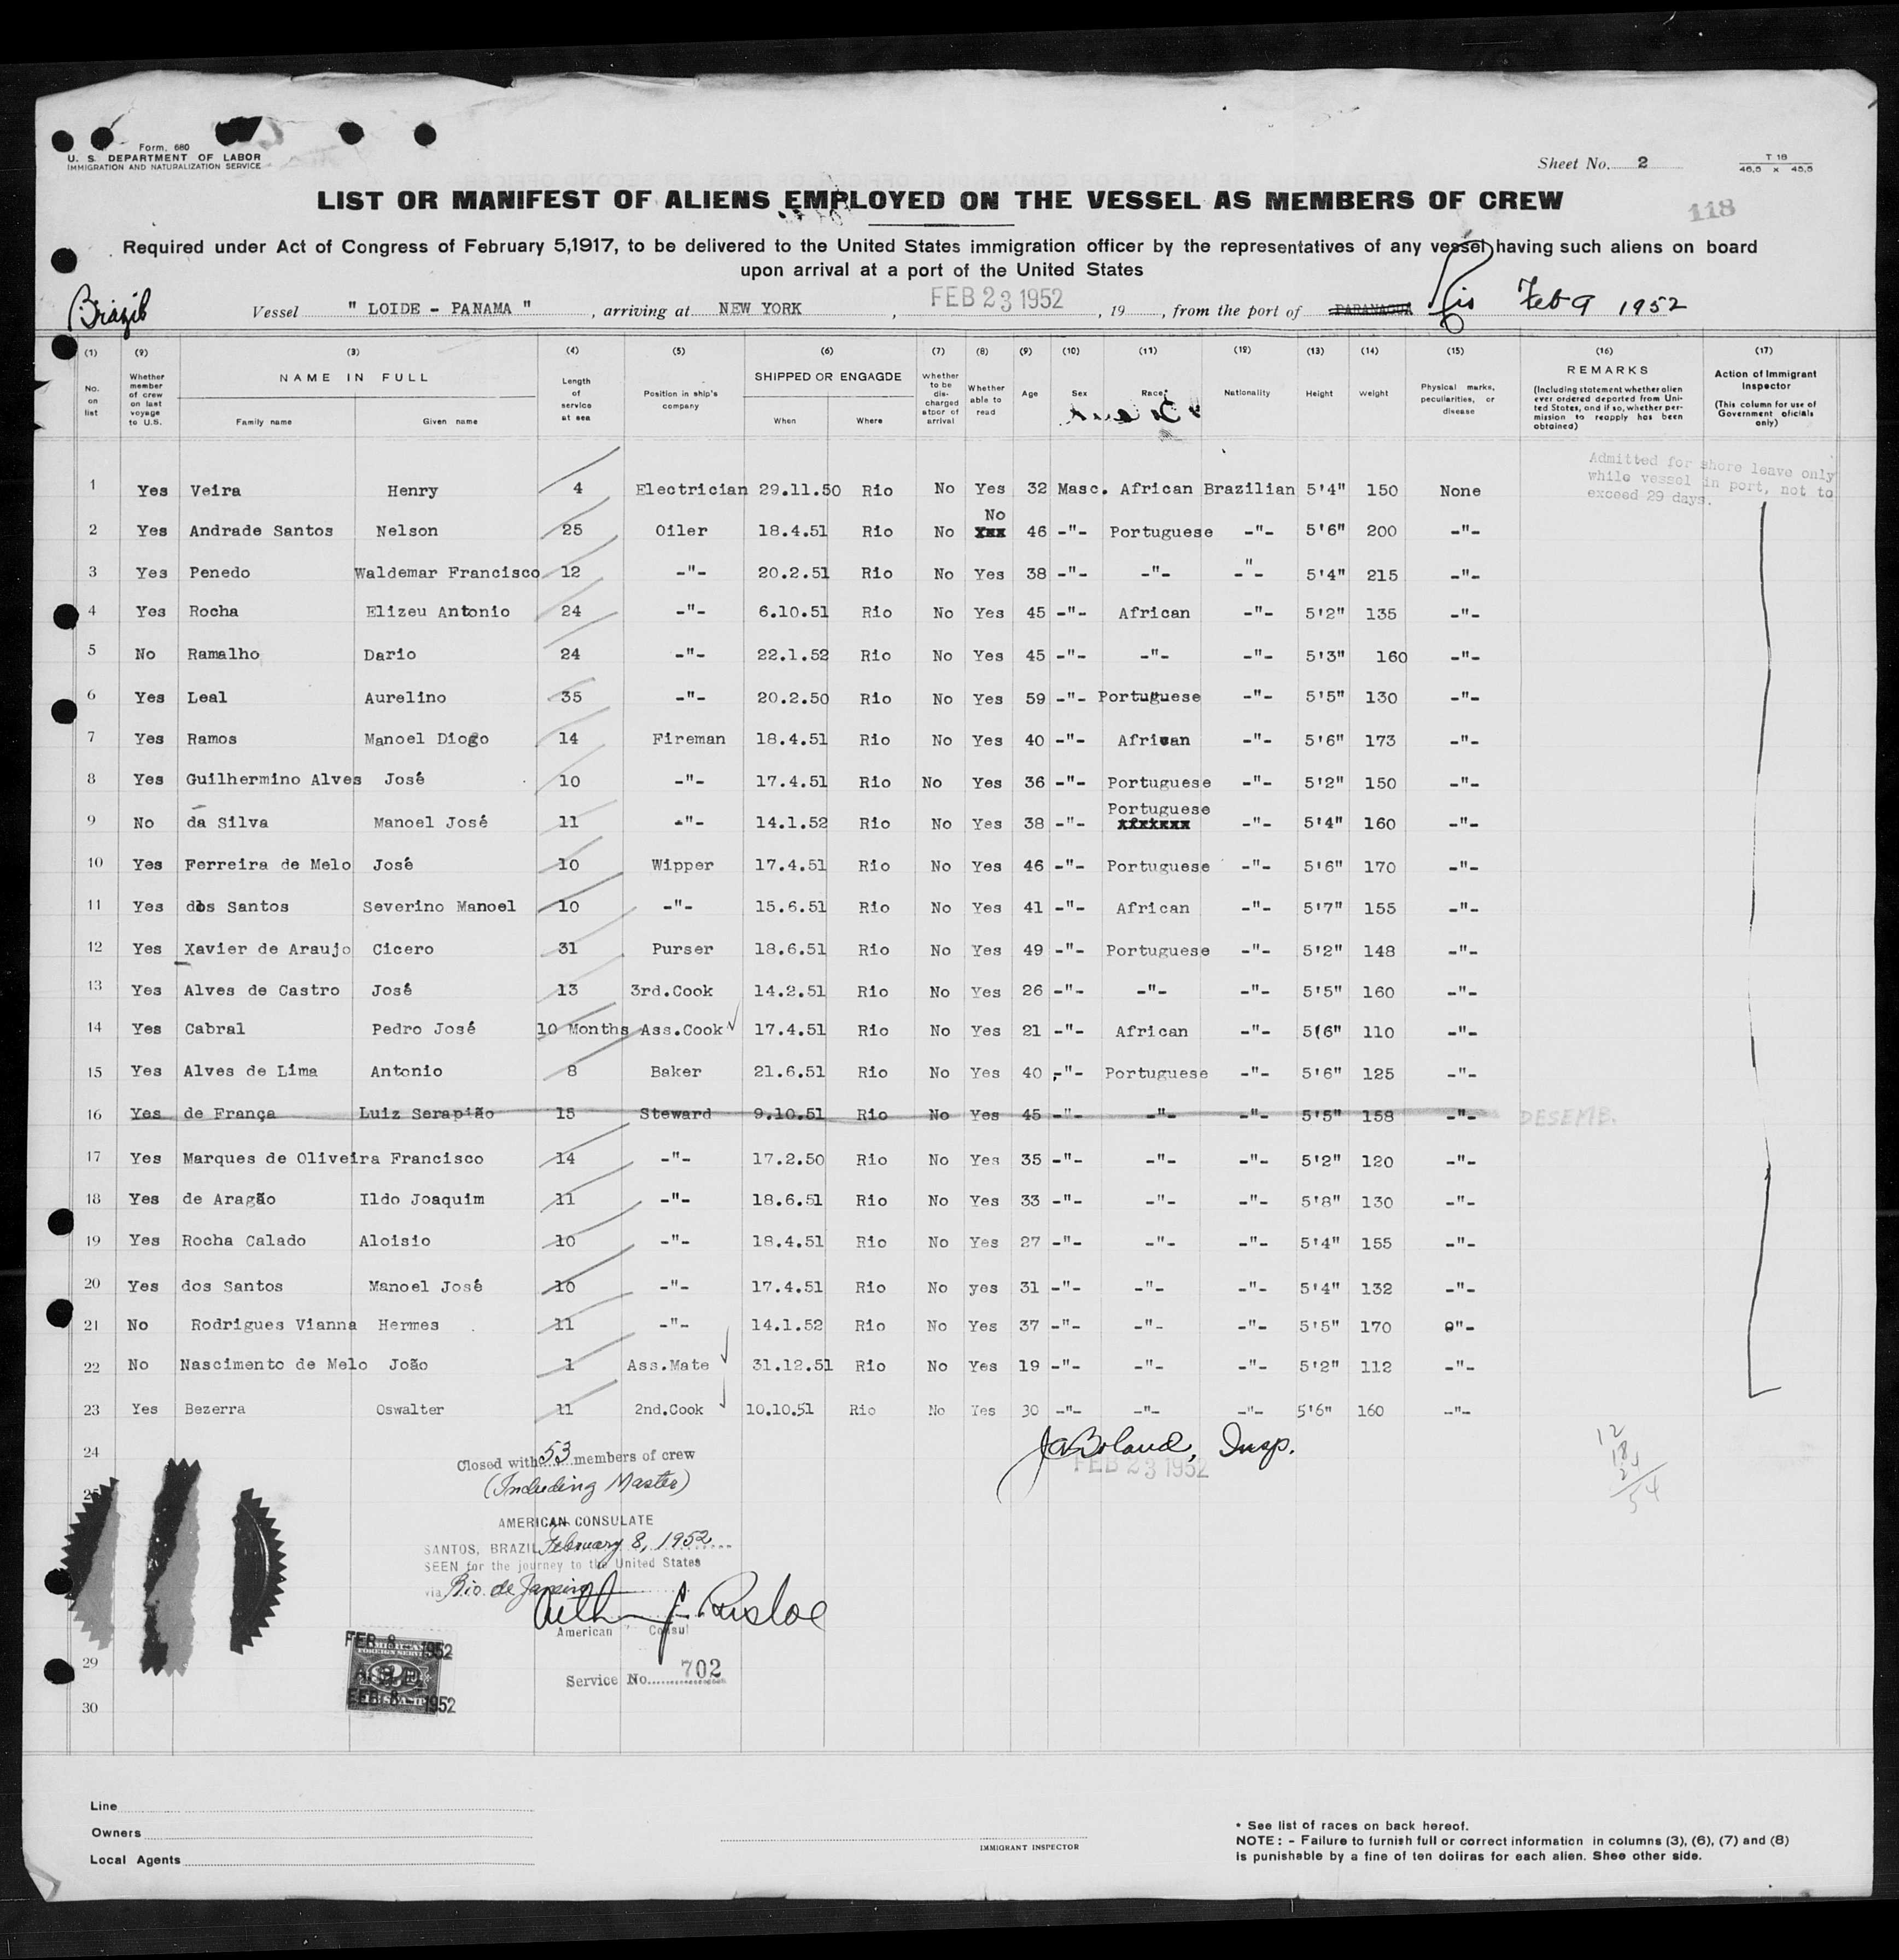 Form. 680
U. S. DEPARTMENT OF LABOR
IMMIGRATION AND NATURALIZATION SERVICE
Sheet No. 2
T 18
46,5 x 45,5
LIST OR MANIFEST OF ALIENS EMPLOYED ON THE VESSEL AS MEMBERS OF CREW
118
Required under Act of Congress of February 5,1917, to be delivered to the United States immigration officer by the representatives of any vessel having such aliens on board
upon arrival at a port of the United States
Brazil Vessel " LOIDE - PANAMA " , arriving at NEW YORK , FEB 23 1952 , 19 , from the port of PARANAGUA Rio Feb 9 1952
(1) (2) (3) (4) (5) (6) (7) (8) (9) (10) (11) (12) (13) (14) (15) (16) (17)
No. on list
Whether member of crew on last voyage to U.S.
NAME IN FULL
Family name Given name
Length of service at sea
Position in ship's company
SHIPPED OR ENGAGDE
When Where
Whether to be dis- charged atpor of arrival
Whether able to read
Age
Sex
Race
Nationality
Height
Weight
Physical marks, peculiarities, or disease
REMARKS
(Including statement whether alien ever ordered deported from Uni- ted States, and if so, whether per- mission to reapply has been obtained)
Action of Immigrant Inspector
(This column for use of Government oficials only)
Admitted for shore leave only
while vessel in port, not to
exceed 29 days.
1 Yes Veira Henry 4 Electrician 29.11.50 Rio No Yes 32 Masc. African Brazilian 5'4" 150 None
No
2 Yes Andrade Santos Nelson 25 Oiler 18.4.51 Rio No 46 -"- Portuguese -"- 5'6" 200 -"-
3 Yes Penedo Waldemar Francisco 12 -"- 20.2.51 Rio No Yes 38 -"- -"- -"- 5'4" 215 -"-
4 Yes Rocha Elizeu Antonio 24 -"- 6.10.51 Rio No Yes 45 -"- African -"- 5'2" 135 -"-
5 No Ramalho Dario 24 -"- 22.1.52 Rio No Yes 45 -"- -"- -"- 5'3" 160 -"-
6 Yes Leal Aurelino 35 -"- 20.2.50 Rio No Yes 59 -"- Portuguese -"- 5'5" 130 -"-
7 Yes Ramos Manoel Diogo 14 Fireman 18.4.51 Rio No Yes 40 -"- African -"- 5'6" 173 -"-
8 Yes Guilhermino Alves José 10 -"- 17.4.51 Rio No Yes 36 -"- Portuguese -"- 5'2" 150 -"-
Portuguese
9 No da Silva Manoel José 11 -"- 14.1.52 Rio No Yes 38 -"- -"- 5'4" 160 -"-
10 Yes Ferreira de Melo José 10 Wipper 17.4.51 Rio No Yes 46 -"- Portuguese -"- 5'6" 170 -"-
11 Yes dos Santos Severino Manoel 10 -"- 15.6.51 Rio No Yes 41 -"- African -"- 5'7" 155 -"-
12 Yes Xavier de Araujo Cicero 31 Purser 18.6.51 Rio No Yes 49 -"- Portuguese -"- 5'2" 148 -"-
13 Yes Alves de Castro José 13 3rd.Cook 14.2.51 Rio No Yes 26 -"- -"- -"- 5'5" 160 -"-
14 Yes Cabral Pedro José 10 Months Ass.Cook 17.4.51 Rio No Yes 21 -"- African -"- 5(6" 110 -"-
15 Yes Alves de Lima Antonio 8 Baker 21.6.51 Rio No Yes 40 -"- Portuguese -"- 5'6" 125 -"-
16 Yes de França Luiz Serapião 15 Steward 9.10.51 Rio No Yes 45 -"- -"- -"- 5'5" 158 -"- DESEMB.
17 Yes Marques de Oliveira Francisco 14 -"- 17.2.50 Rio No Yes 35 -"- -"- -"- 5'2" 120 -"-
18 Yes de Aragão Ildo Joaquim 11 -"- 18.6.51 Rio No Yes 33 -"- -"- -"- 5'8" 130 -"-
19 Yes Rocha Calado Aloisio 10 -"- 18.4.51 Rio No Yes 27 -"- -"- -"- 5'4" 155 -"-
20 Yes dos Santos Manoel José 10 -"- 17.4.51 Rio No yes 31 -"- -"- -"- 5'4" 132 -"-
21 No Rodrigues Vianna Hermes 11 -"- 14.1.52 Rio No Yes 37 -"- -"- -"- 5'5" 170 "-
22 No Nascimento de Melo João 1 Ass.Mate 31.12.51 Rio No Yes 19 -"- -"- -"- 5'2" 112 -"-
23 Yes Bezerra Oswalter 11 2nd.Cook 10.10.51 Rio No Yes 30 -"- -"- -"- 5'6" 160 -"-
24
Closed with 53 members of crew
(Including Master)
JABoland, Insp.
FEB 23 1952
12
18
54
AMERICAN CONSULATE
SANTOS, BRAZIL February 8, 1952
SEEN for the journey to the United States
via Rio de Janeiro
American Consul
Service No. 702
FEB 8 - 1952
FEB 8 - 1952
29
30
Line
Owners
Local Agents
IMMIGRANT INSPECTOR
* See list of races on back hereof.
NOTE : - Failure to furnish full or correct information in columns (3), (6), (7) and (8)
is punishable by a fine of ten dollras for each alien. Shee other side.